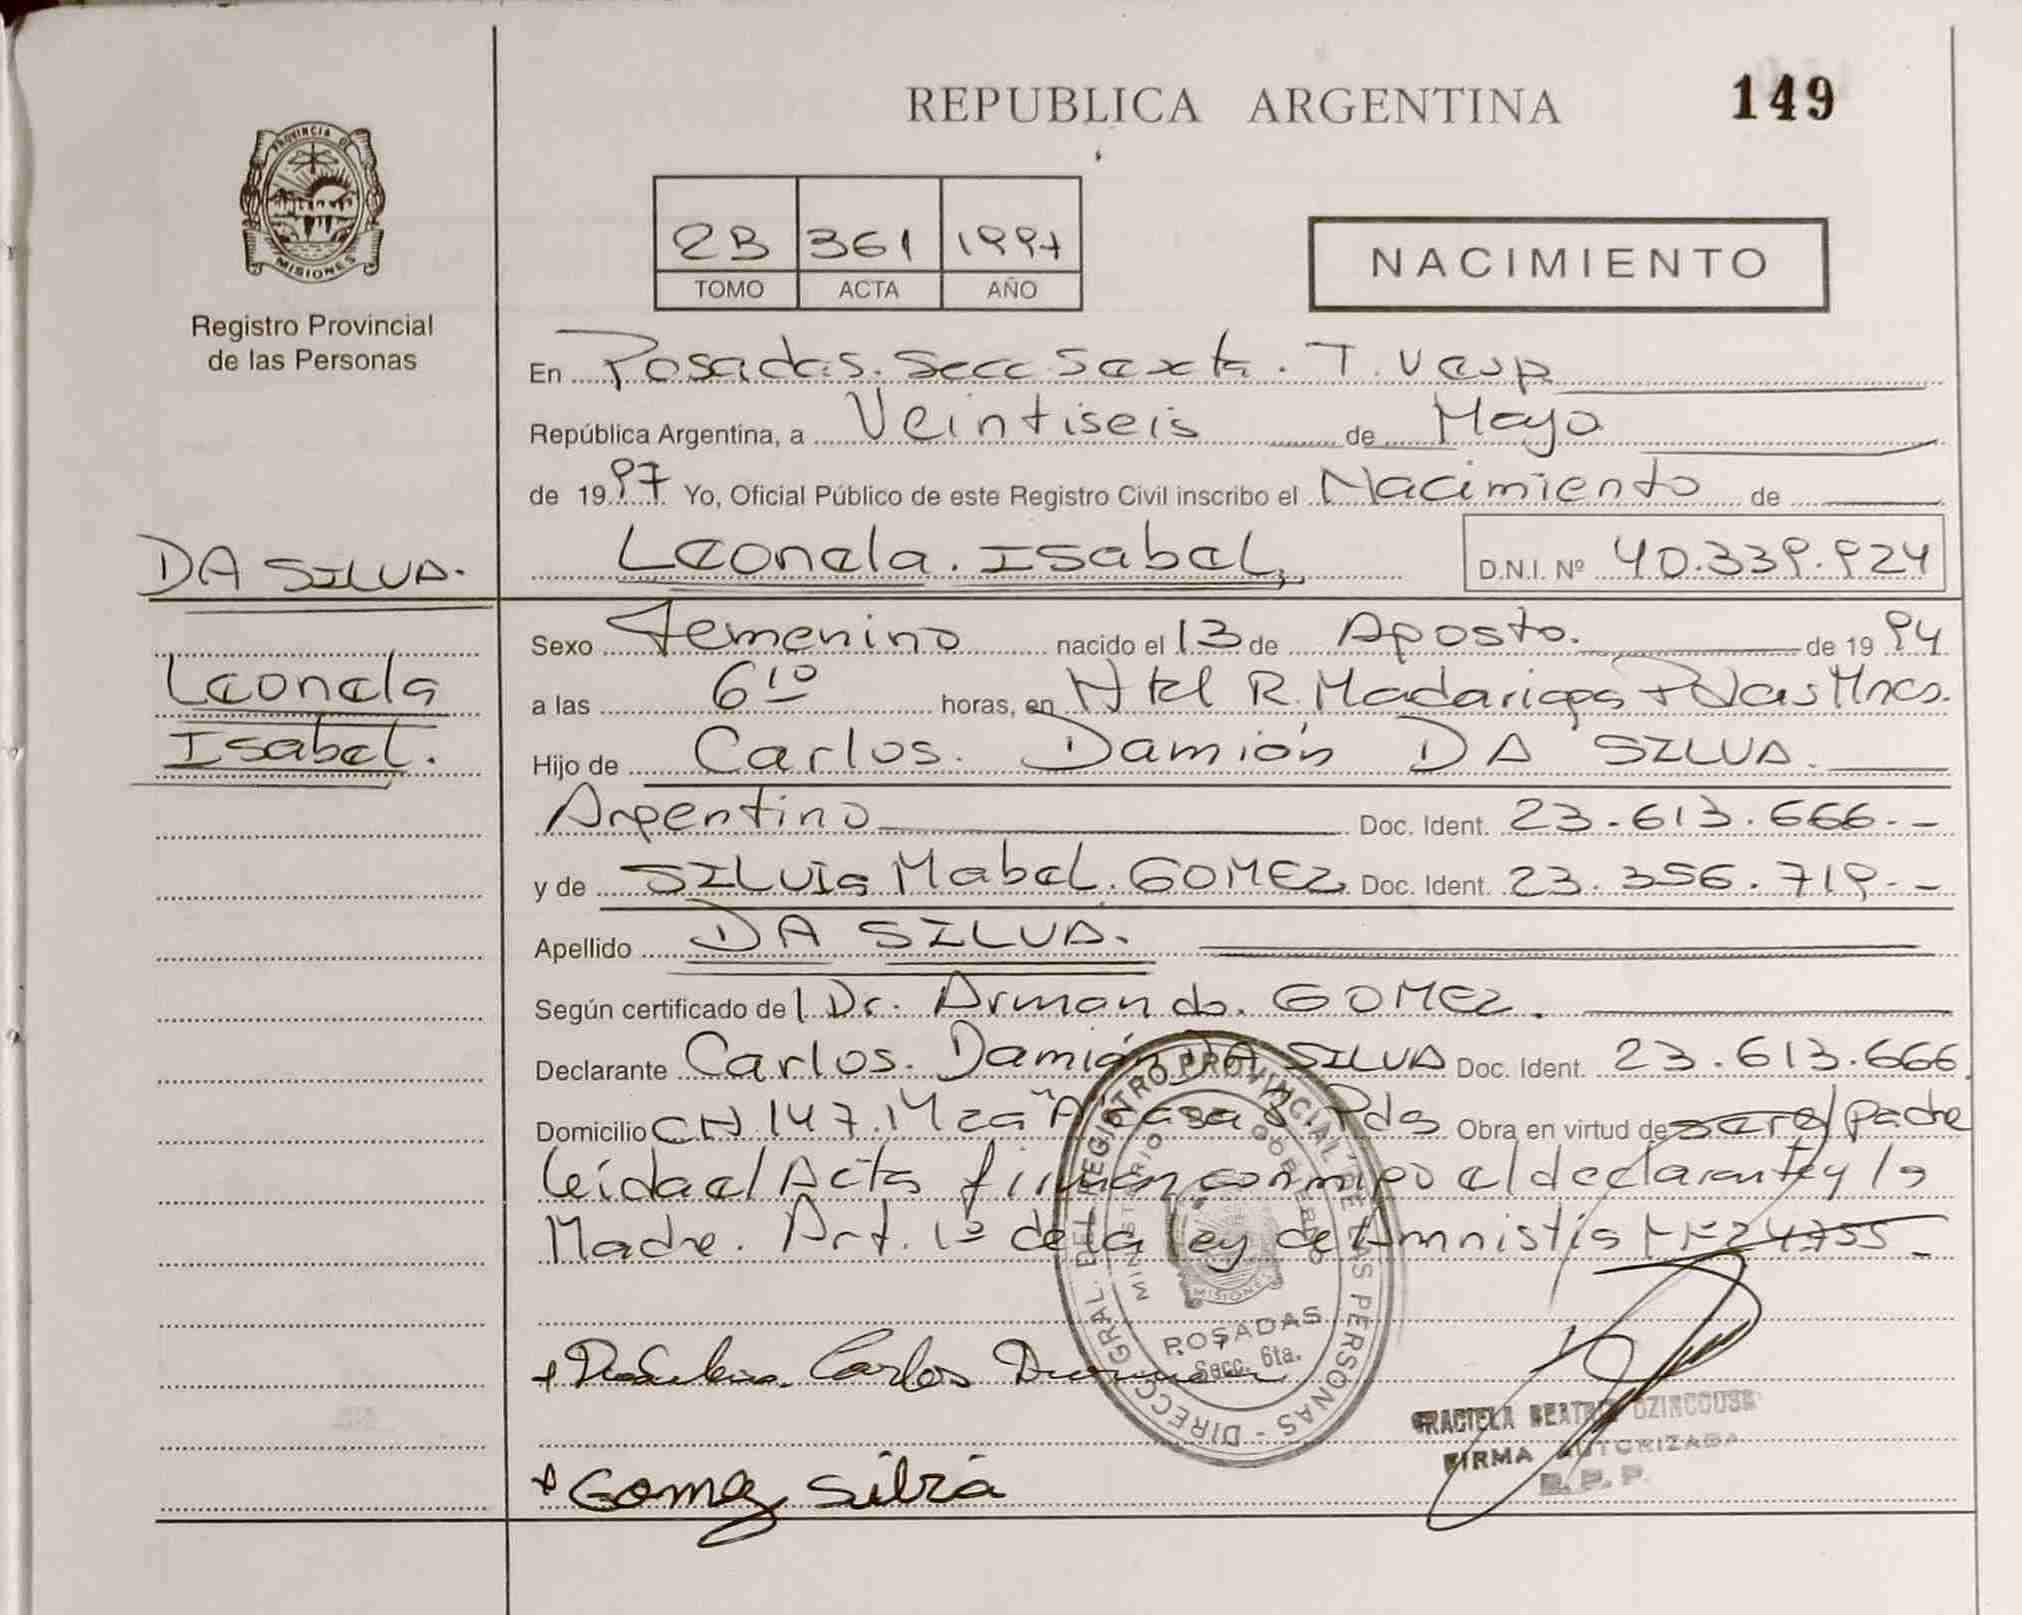 REPUBLICA ARGENTINA
149
PROVINCIA DE
MISIONES
Registro Provincial
de las Personas
2B 361 1997
TOMO ACTA AÑO
NACIMIENTO
En Posadas. Secc Sexta. T. Vesp
República Argentina, a Veintiseis de Mayo
de 1997 Yo, Oficial Público de este Registro Civil inscribo el Nacimiento de
Leonela. Isabel,
D.N.I. Nº 40.339.924
DA SILVA.
Leonela
Isabel.
Sexo Femenino nacido el 13 de Agosto. de 1994
a las 6 10 horas, en Htel R. Madariaga Pdas Mnes.
Hijo de Carlos. Damián DA SILVA.
Argentino Doc. Ident. 23.613.666.-
y de SILVIa Mabel. GOMEZ Doc. Ident. 23.356.719.-
Apellido DA SILVA.
Según certificado del Dr. Armando. GOMEZ.
Declarante Carlos. Damián DA SILVA Doc. Ident. 23.613.666
Domicilio CH 147. Mza "A" casa 8. Pds Obra en virtud de ser el padre
leída el Acta firman conmigo el declarante y la
Madre. Art. 1º de la ley de Amnistía Nº 24755
DIRECC. GRAL. DEL REGISTRO PROVINCIAL DE LAS PERSONAS
MINISTERIO DE GOBIERNO
MISIONES
POSADAS
Secc. 6ta.
+ Da Silva. Carlos Damian
GRACIELA BEATRIZ
FIRMA AUTORIZADA
R.P.P.
+ Gomez Silvia